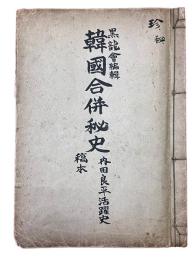 珍秘
黒龍會編輯
韓國合併秘史
内田良平活躍史
稿本